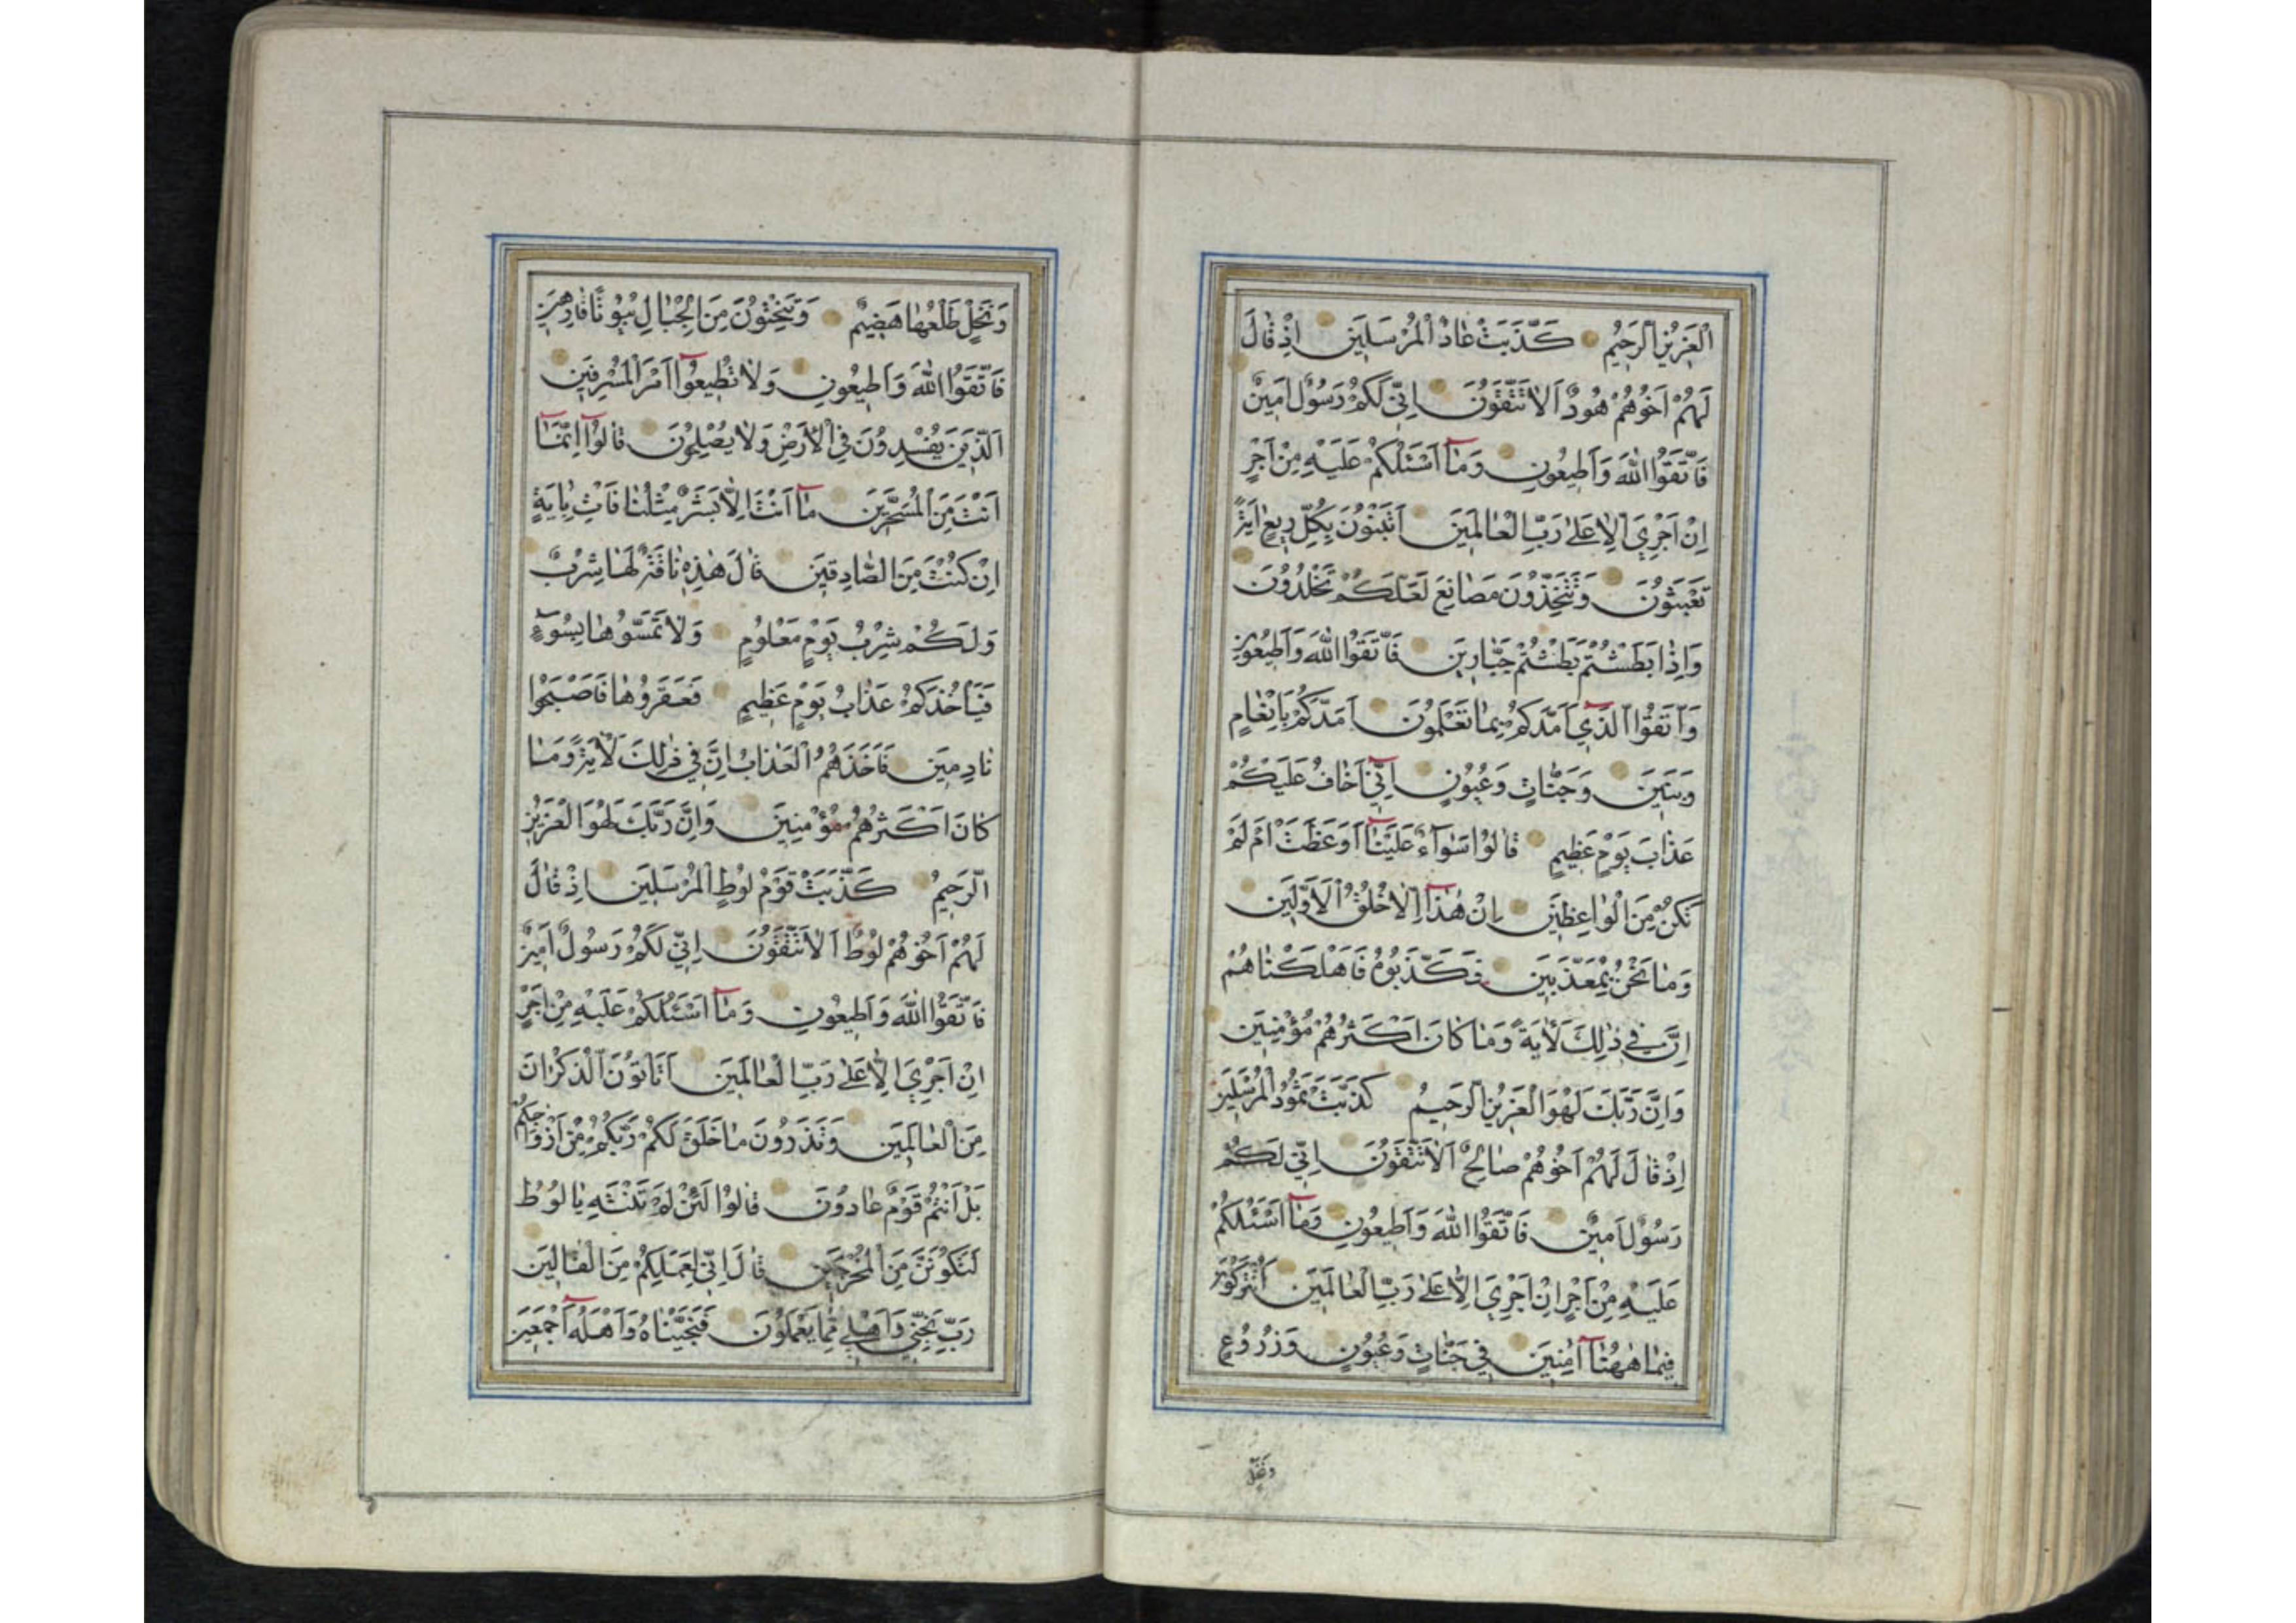 الْعَزِيزُ الرَّحِيمُ كَذَّبَتْ عَادٌ الْمُرْسَلِينَ اِذْ قَالَ
لَهُمْ اَخُوهُمْ هُودٌ اَلَا تَتَّقُونَ اِنِّي لَكُمْ رَسُولٌ اَمِينٌ
فَاتَّقُوا اللّٰهَ وَاَطِيعُونِ وَمَآ اَسْئَلُكُمْ عَلَيْهِ مِنْ اَجْرٍ
اِنْ اَجْرِيَ اِلَّا عَلٰى رَبِّ الْعَالَمِينَ اَتَبْنُونَ بِكُلِّ رِيعٍ اٰيَةً
تَعْبَثُونَ وَتَتَّخِذُونَ مَصَانِعَ لَعَلَّكُمْ تَخْلُدُونَ
وَاِذَا بَطَشْتُمْ بَطَشْتُمْ جَبَّارِينَ فَاتَّقُوا اللّٰهَ وَاَطِيعُونِ
وَاتَّقُوا الَّذِيٓ اَمَدَّكُمْ بِمَا تَعْلَمُونَ اَمَدَّكُمْ بِاَنْعَامٍ
وَبَنِينَ وَجَنَّاتٍ وَعُيُونٍ اِنِّيٓ اَخَافُ عَلَيْكُمْ
عَذَابَ يَوْمٍ عَظِيمٍ قَالُوا سَوَآءٌ عَلَيْنَآ اَوَعَظْتَ اَمْ لَمْ
تَكُنْ مِنَ الْوَاعِظِينَ اِنْ هٰذَآ اِلَّا خُلُقُ الْاَوَّلِينَ
وَمَا نَحْنُ بِمُعَذَّبِينَ فَكَذَّبُوهُ فَاَهْلَكْنَاهُمْ
اِنَّ فِي ذٰلِكَ لَاٰيَةً وَمَا كَانَ اَكْثَرُهُمْ مُؤْمِنِينَ
وَاِنَّ رَبَّكَ لَهُوَ الْعَزِيزُ الرَّحِيمُ كَذَّبَتْ ثَمُودُ الْمُرْسَلِينَ
اِذْ قَالَ لَهُمْ اَخُوهُمْ صَالِحٌ اَلَا تَتَّقُونَ اِنِّي لَكُمْ
رَسُولٌ اَمِينٌ فَاتَّقُوا اللّٰهَ وَاَطِيعُونِ وَمَآ اَسْئَلُكُمْ
عَلَيْهِ مِنْ اَجْرٍ اِنْ اَجْرِيَ اِلَّا عَلٰى رَبِّ الْعَالَمِينَ اَتُتْرَكُونَ
فِيمَا هٰهُنَآ اٰمِنِينَ فِي جَنَّاتٍ وَعُيُونٍ وَزُرُوعٍ
وَنَخْلٍ
وَنَخْلٍ طَلْعُهَا هَضِيمٌ وَتَنْحِتُونَ مِنَ الْجِبَالِ بُيُوتًا فَارِهِينَ
فَاتَّقُوا اللّٰهَ وَاَطِيعُونِ وَلَا تُطِيعُوٓا اَمْرَ الْمُسْرِفِينَ
اَلَّذِينَ يُفْسِدُونَ فِي الْاَرْضِ وَلَا يُصْلِحُونَ قَالُوٓا اِنَّمَآ
اَنْتَ مِنَ الْمُسَحَّرِينَ مَآ اَنْتَ اِلَّا بَشَرٌ مِثْلُنَا فَاْتِ بِاٰيَةٍ
اِنْ كُنْتَ مِنَ الصَّادِقِينَ قَالَ هٰذِهِ نَاقَةٌ لَهَا شِرْبٌ
وَلَكُمْ شِرْبُ يَوْمٍ مَعْلُومٍ وَلَا تَمَسُّوهَا بِسُوٓءٍ
فَيَاْخُذَكُمْ عَذَابُ يَوْمٍ عَظِيمٍ فَعَقَرُوهَا فَاَصْبَحُوا
نَادِمِينَ فَاَخَذَهُمُ الْعَذَابُ اِنَّ فِي ذٰلِكَ لَاٰيَةً وَمَا
كَانَ اَكْثَرُهُمْ مُؤْمِنِينَ وَاِنَّ رَبَّكَ لَهُوَ الْعَزِيزُ
الرَّحِيمُ كَذَّبَتْ قَوْمُ لُوطٍ الْمُرْسَلِينَ اِذْ قَالَ
لَهُمْ اَخُوهُمْ لُوطٌ اَلَا تَتَّقُونَ اِنِّي لَكُمْ رَسُولٌ اَمِينٌ
فَاتَّقُوا اللّٰهَ وَاَطِيعُونِ وَمَآ اَسْئَلُكُمْ عَلَيْهِ مِنْ اَجْرٍ
اِنْ اَجْرِيَ اِلَّا عَلٰى رَبِّ الْعَالَمِينَ اَتَاْتُونَ الذُّكْرَانَ
مِنَ الْعَالَمِينَ وَتَذَرُونَ مَا خَلَقَ لَكُمْ رَبُّكُمْ مِنْ اَزْوَاجِكُمْ
بَلْ اَنْتُمْ قَوْمٌ عَادُونَ قَالُوا لَئِنْ لَمْ تَنْتَهِ يَا لُوطُ
لَتَكُونَنَّ مِنَ الْمُخْرَجِينَ قَالَ اِنِّي لِعَمَلِكُمْ مِنَ الْقَالِينَ
رَبِّ نَجِّنِي وَاَهْلِي مِمَّا يَعْمَلُونَ فَنَجَّيْنَاهُ وَاَهْلَهُٓ اَجْمَعِينَ